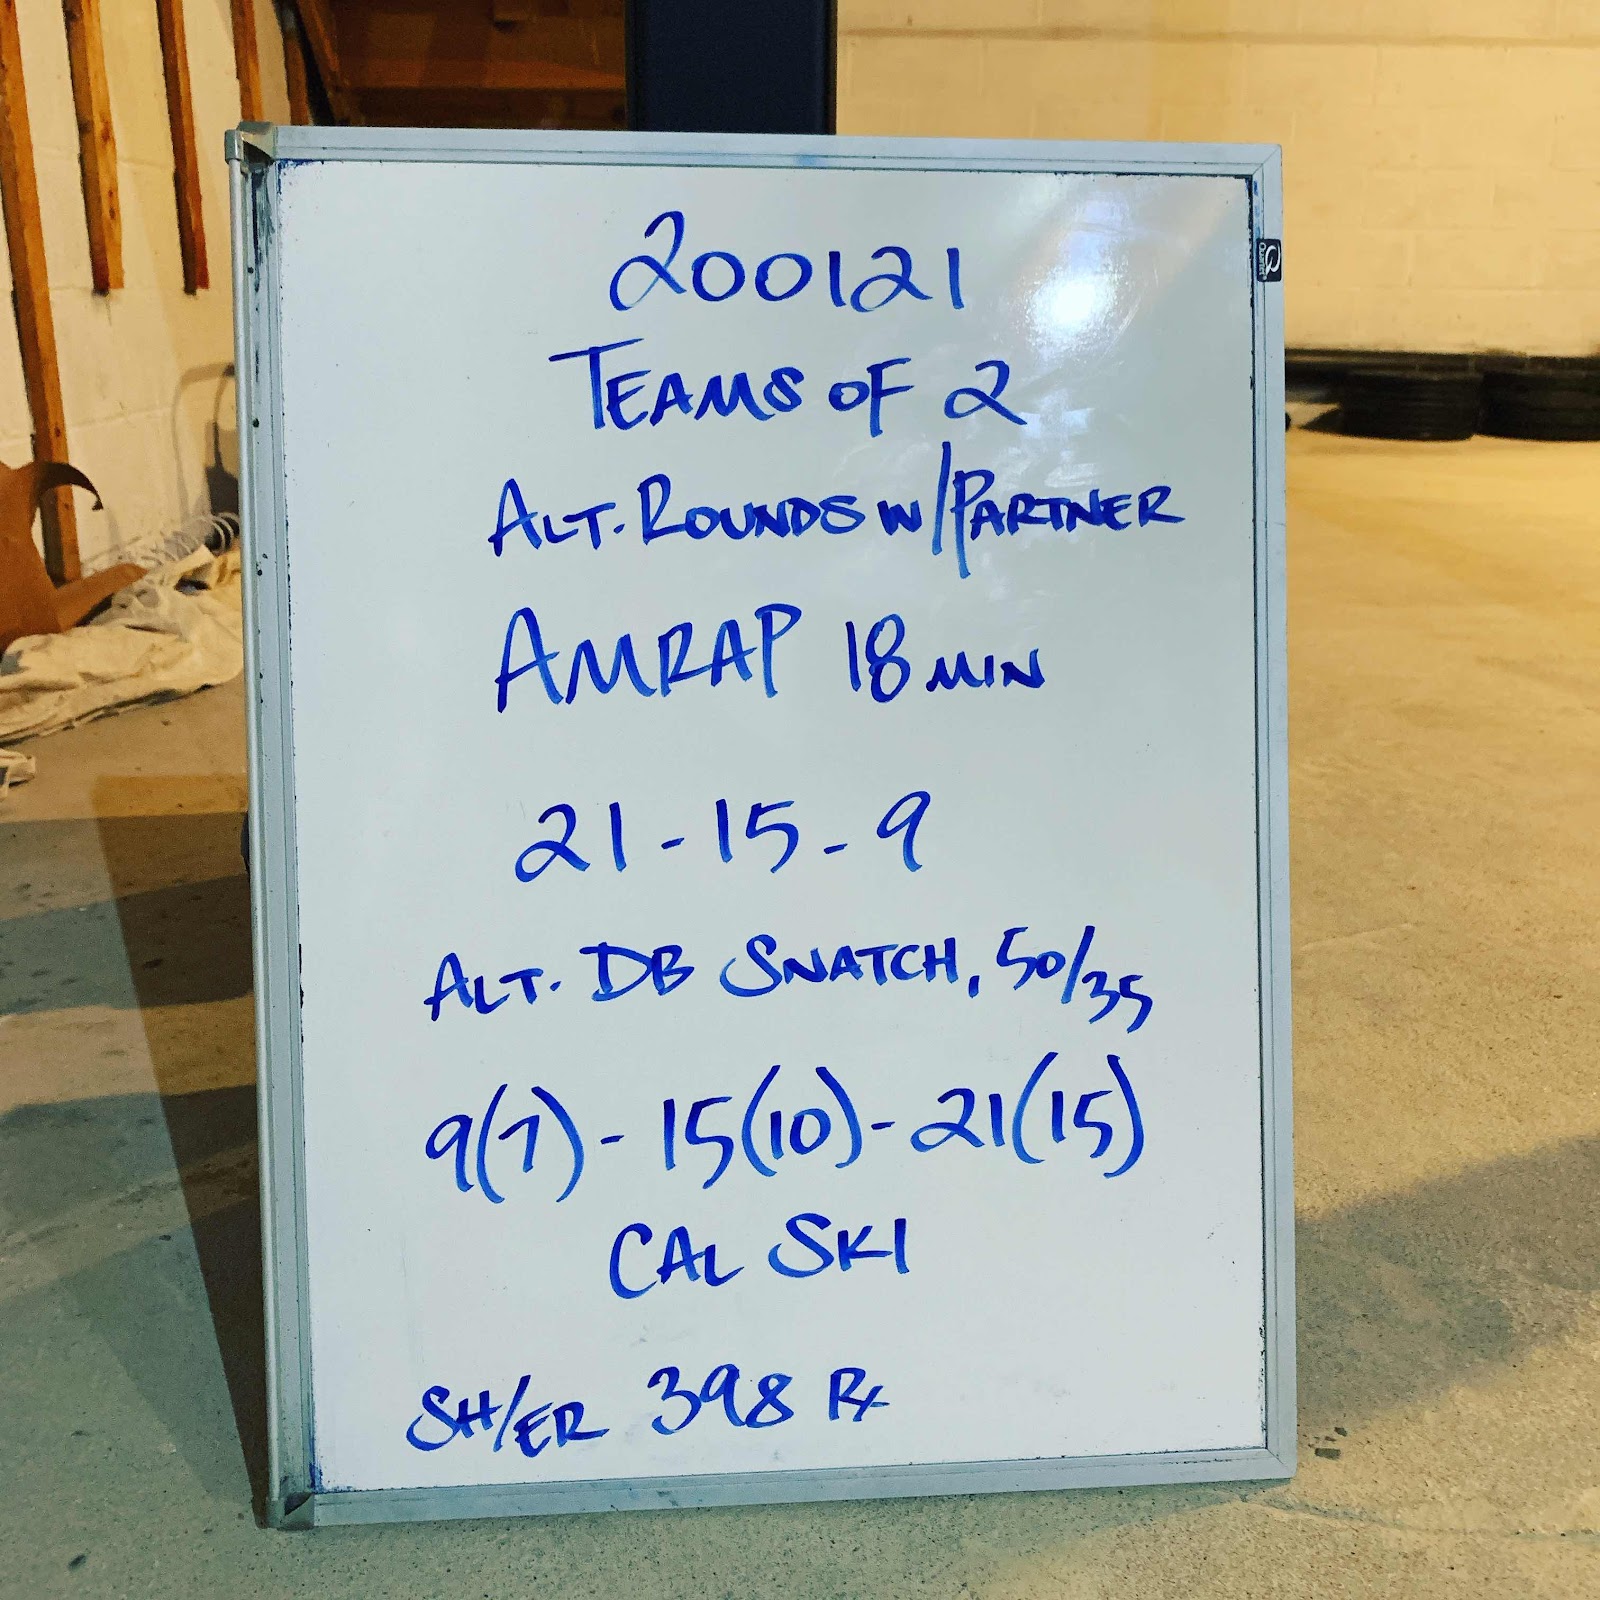 200121
TEAMS OF 2
ALT. ROUNDS W/PARTNER
AMRAP 18 MIN
21-15-9
ALT. DB SNATCH, 50/35
9(7)-15(10)-21(15)
CAL SKI
SH/ER 398 Rx
Quartet